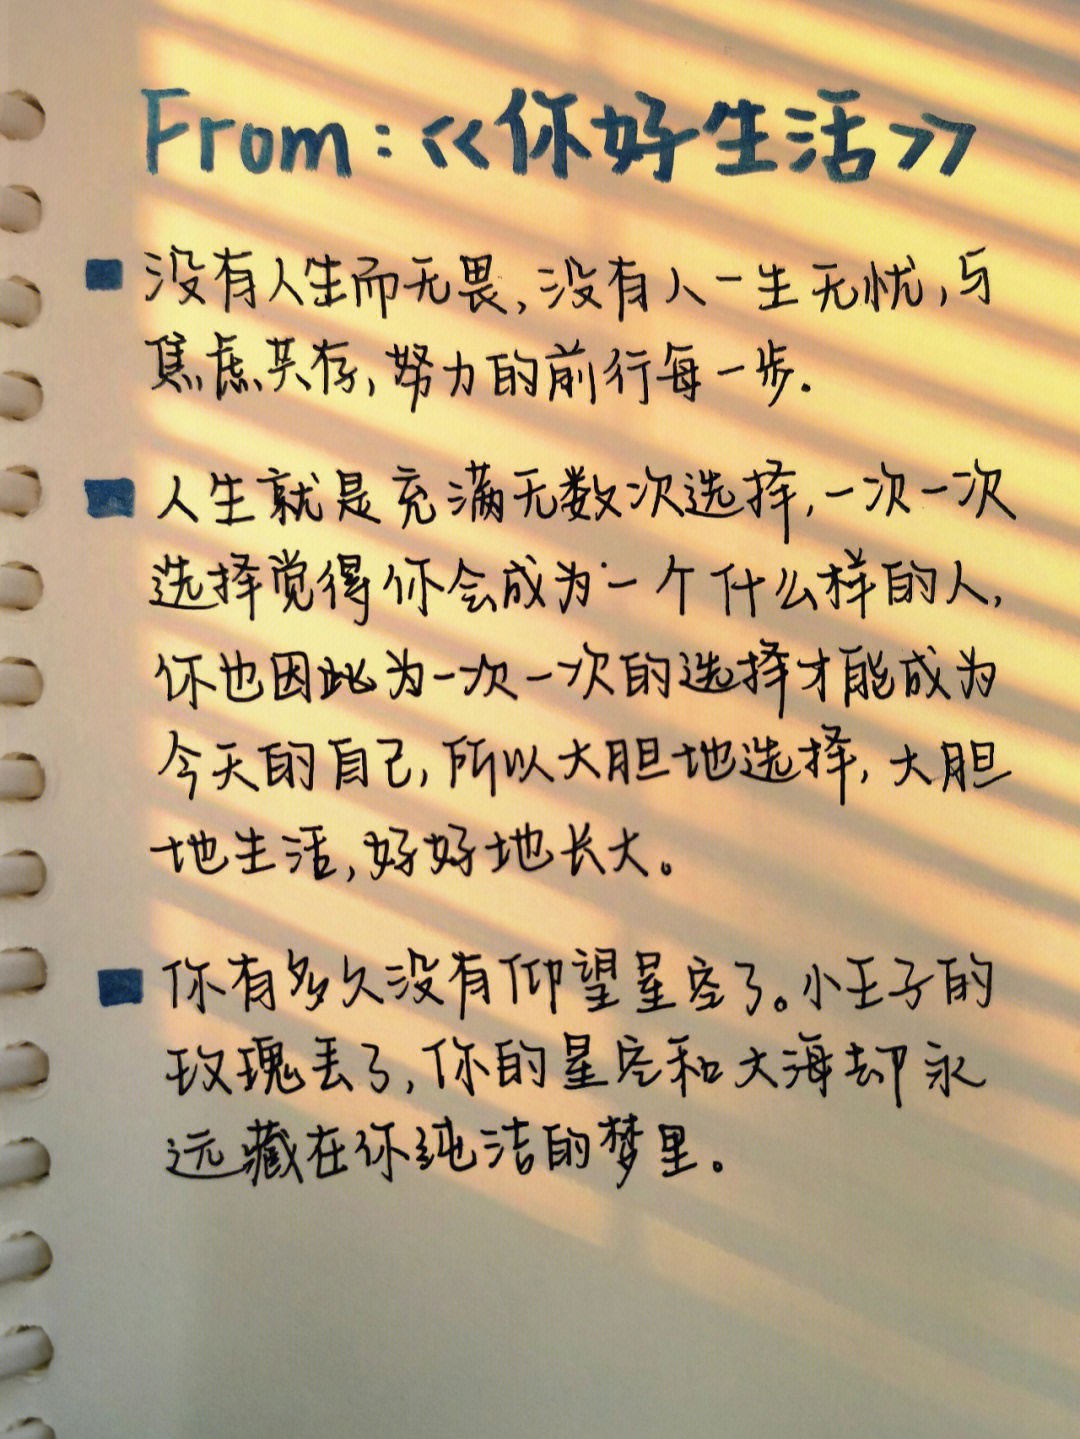 From:《你好生活》
没有人生而无畏,没有人一生无忧,与
焦虑共存,努力的前行每一步.
人生就是充满无数次选择,一次一次
选择觉得你会成为一个什么样的人,
你也因此为一次一次的选择才能成为
今天的自己,所以大胆地选择,大胆
地生活,好好地长大。
你有多久没有仰望星空了。小王子的
玫瑰丢了,你的星空和大海却永
远藏在你纯洁的梦里。